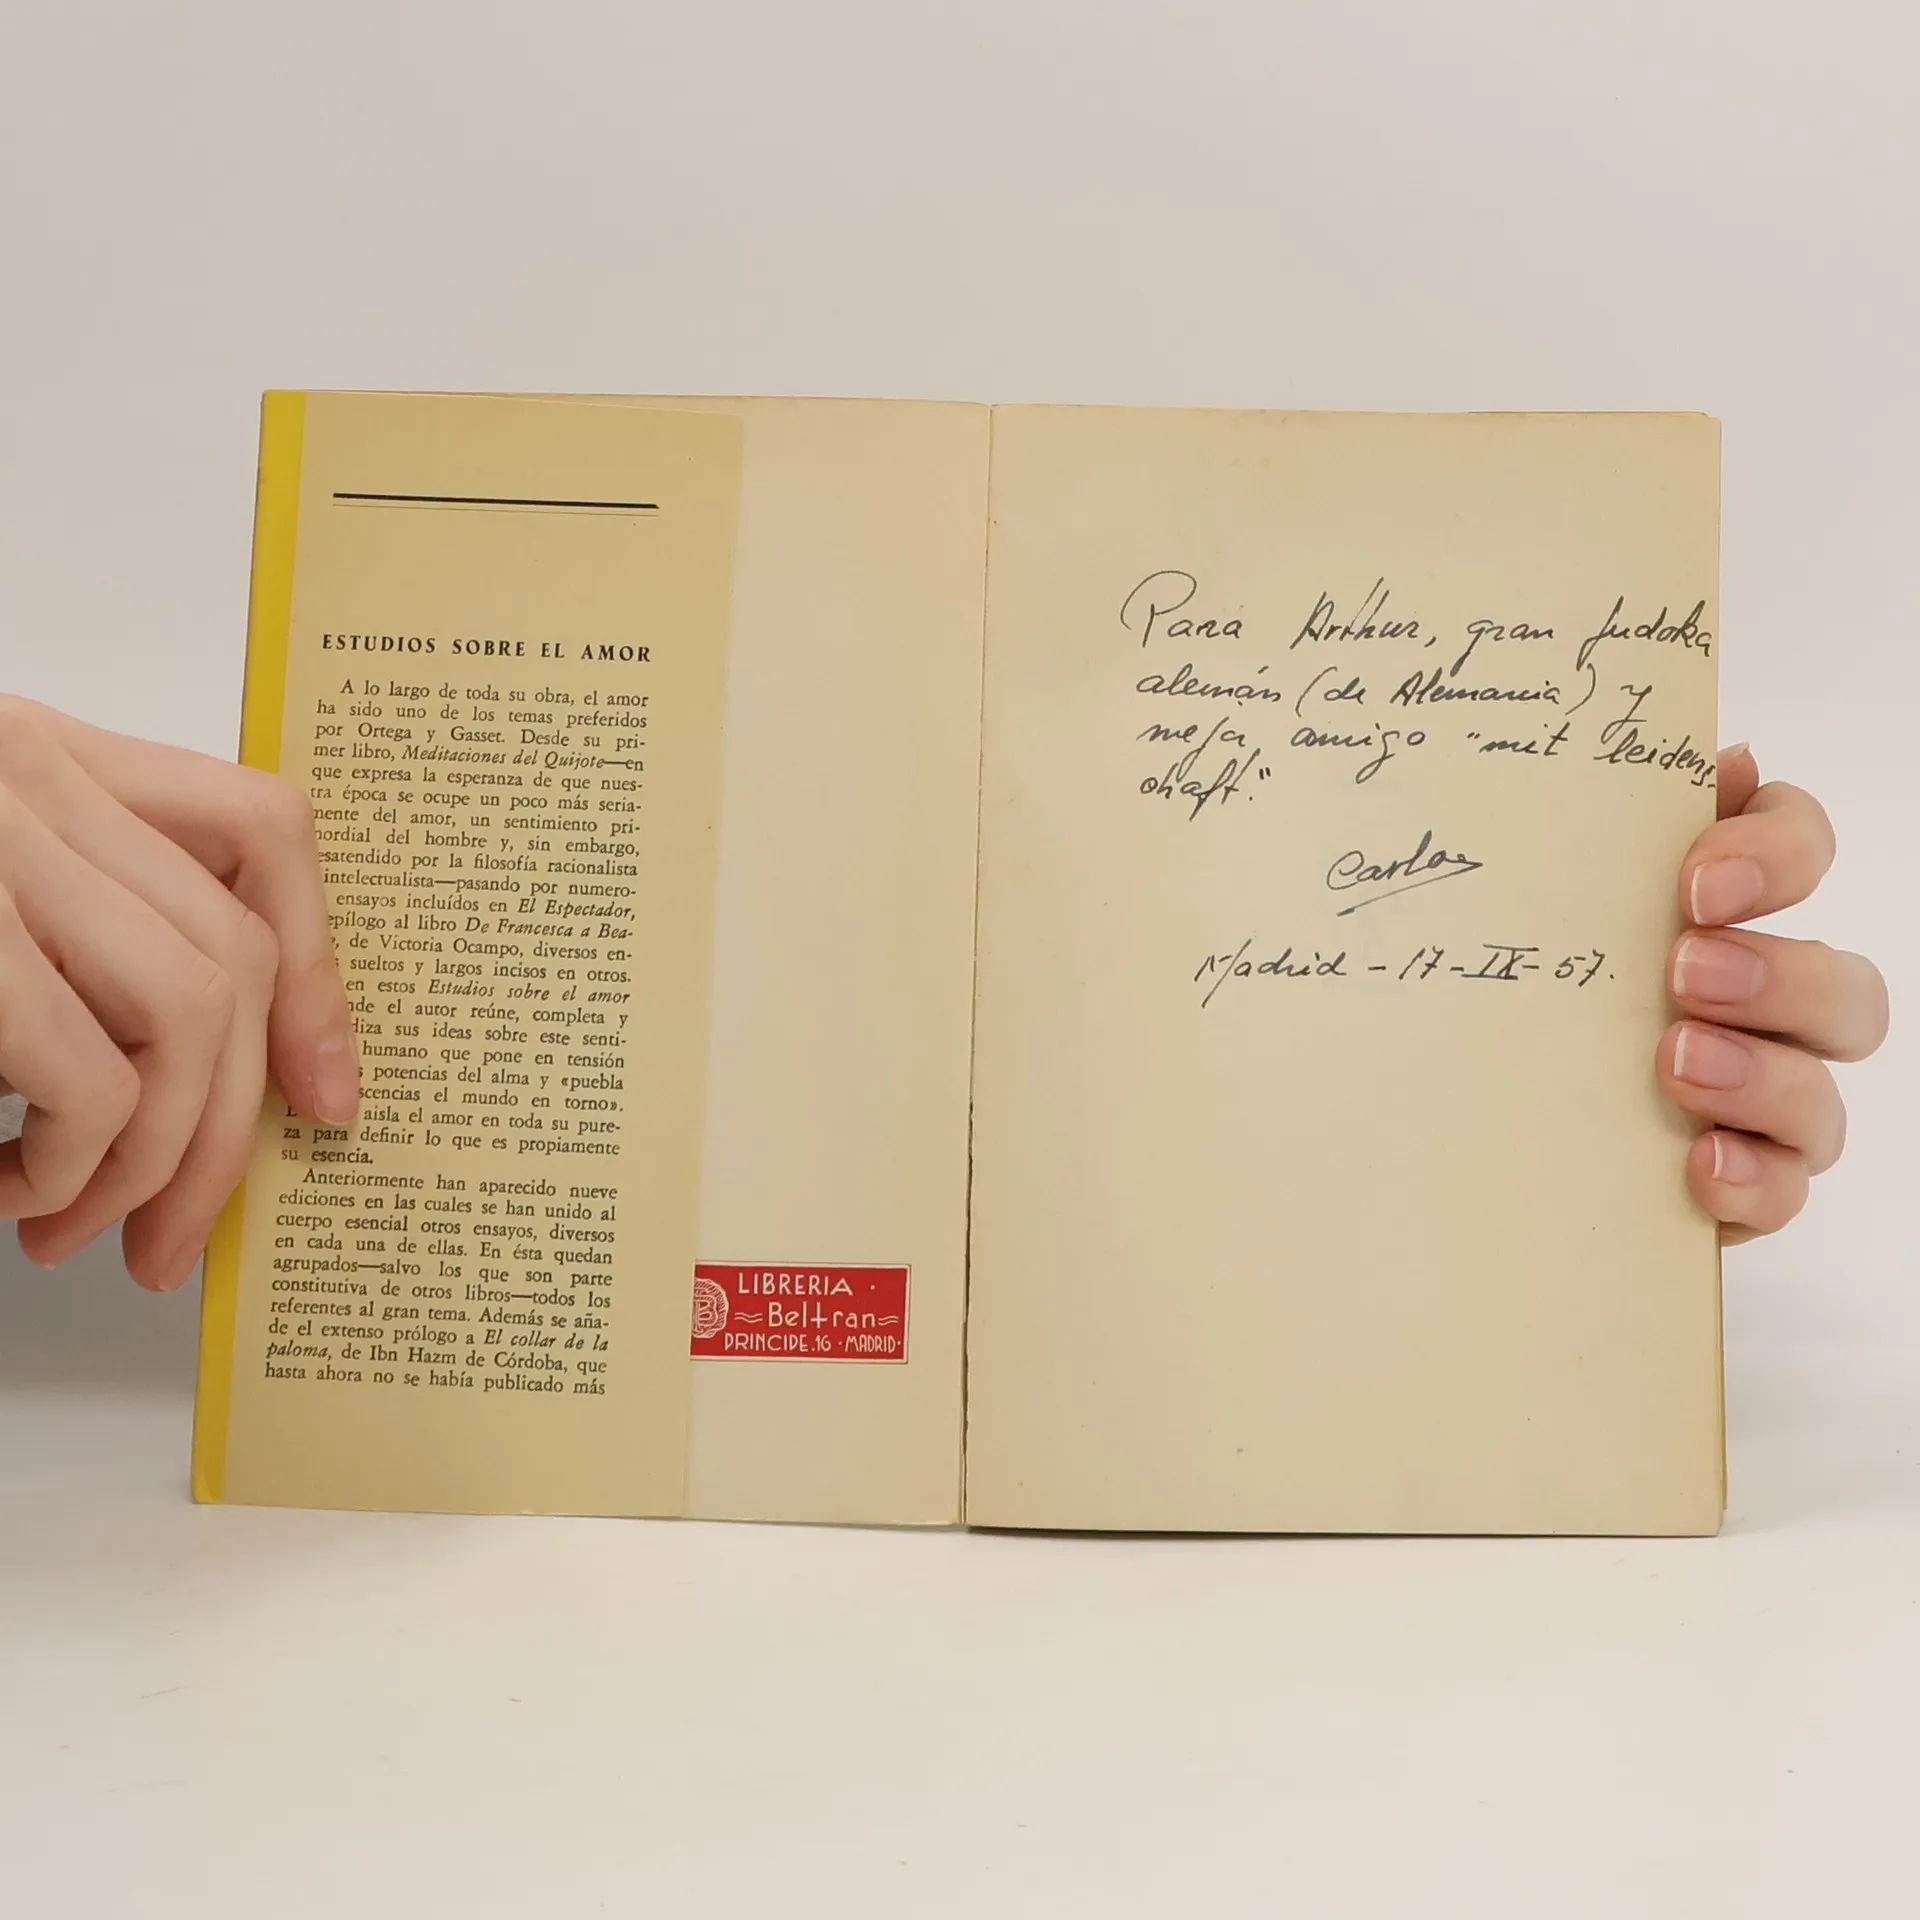 ESTUDIOS SOBRE EL AMOR
A lo largo de toda su obra, el amor
ha sido uno de los temas preferidos
por Ortega y Gasset. Desde su pri-
mer libro, Meditaciones del Quijote—en
que expresa la esperanza de que nues-
tra época se ocupe un poco más seria-
mente del amor, un sentimiento pri-
mordial del hombre y, sin embargo,
esatendido por la filosofía racionalista
intelectualista—pasando por numero-
ensayos incluídos en El Espectador,
epílogo al libro De Francesca a Bea-
, de Victoria Ocampo, diversos en-
sueltos y largos incisos en otros.
en estos Estudios sobre el amor
nde el autor reúne, completa y
diza sus ideas sobre este senti-
humano que pone en tensión
s potencias del alma y «puebla
scencias el mundo en torno».
aisla el amor en toda su pure-
za para definir lo que es propiamente
su esencia.
Anteriormente han aparecido nueve
ediciones en las cuales se han unido al
cuerpo esencial otros ensayos, diversos
en cada una de ellas. En ésta quedan
agrupados—salvo los que son parte
constitutiva de otros libros—todos los
referentes al gran tema. Además se aña-
de el extenso prólogo a El collar de la
paloma, de Ibn Hazm de Córdoba, que
hasta ahora no se había publicado más
LIBRERIA ·
Beltran
PRINCIPE.16 · MADRID·
Para Arthur, gran Judoka
alemán (de Alemania) y
mejor amigo "mit leidens-
chaft."
Carlos
Madrid - 17 - IX - 57.